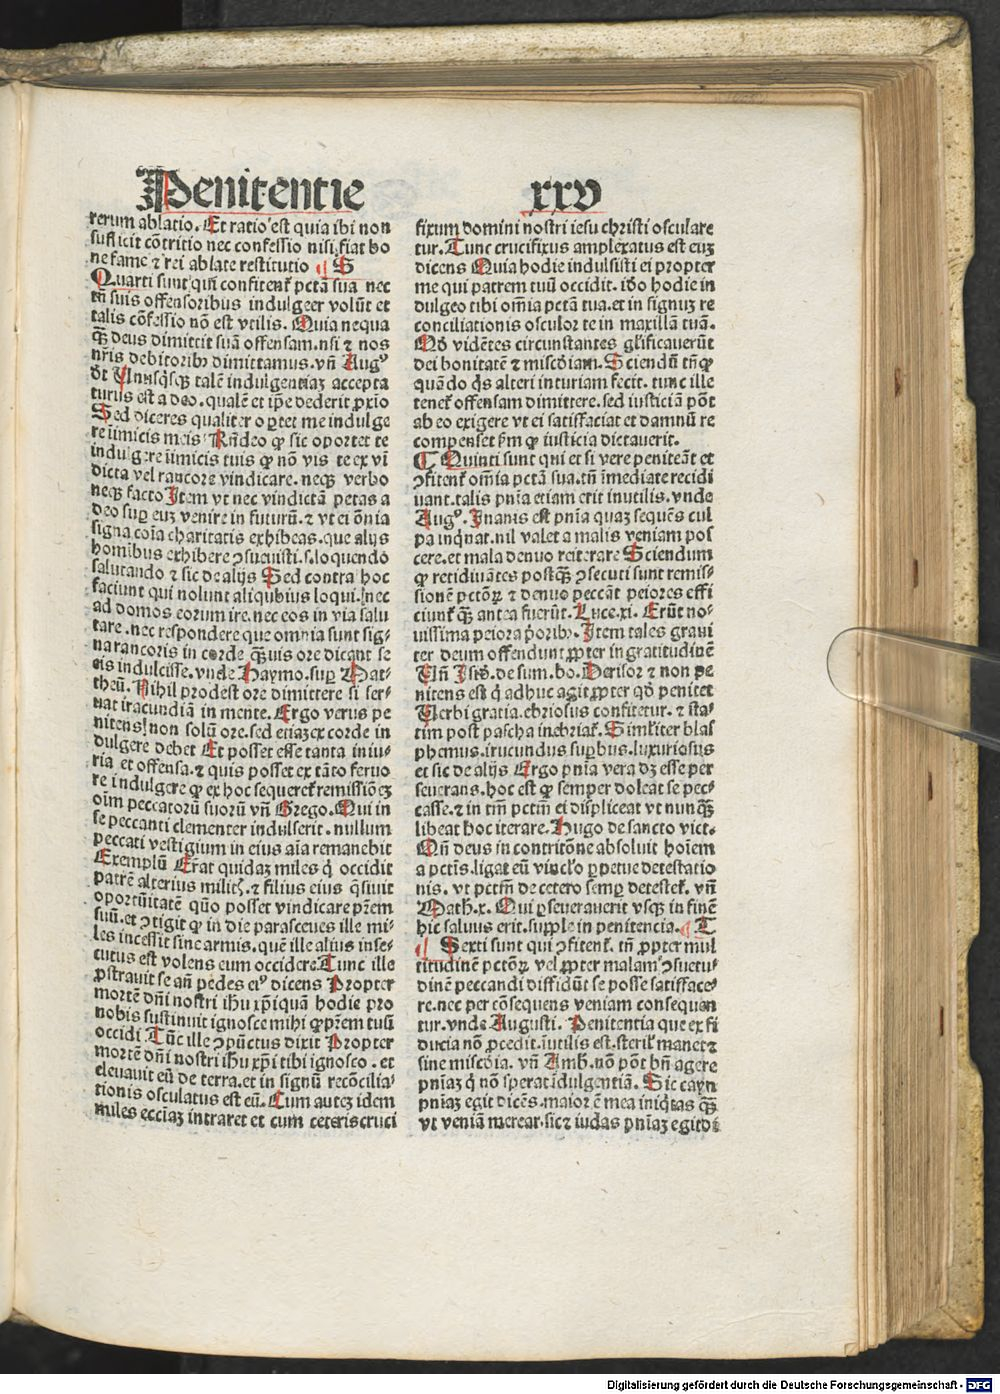 Penitentie
xxv
rerum ablatio. Et ratio est quia ibi non
sufficit cōtritio nec confessio nisi fiat bo
ne fame ⁊ rei ablate restitutio ¶ S
Quarti sunt qui confitent᷑ pctā sua nec
tn̄ suis offensoribus indulgeer volūt et
talis cōfessio nō est vtilis. Quia nequa
qꝫ̄ deus dimittit suā offensam.nsi ⁊ nos
nr̄is debitoribꝫ dimittamus.vn̄ Augꝰ
dt̄ Unusq̇sqꝫ talē indulgentiaꝫ accepta
turus est a deo.qualē et ip̄e dederit ꝓxīo
Sed diceres qualiter oꝑtet me indulge
re iimicis meis Rn̄deo ꝙ sic oportet te
indulgere iimicis tuis ꝙ nō vis te ex vi
dicta vel rancore vindicare.neqꝫ verbo
neqꝫ facto Item vt nec vindictā petas a
deo suꝑ euꝫ venire in futurū.⁊ vt ei ōnia
signa cōia charitatis exhibeas.que alijs
homībus exhibere ↄsueuisti.s.loquendo
salutando ⁊ sic de alijs Sed contra hoc
faciunt qui nolunt aliqibius loqui.nec
ad domos eorum ire.nec eos in via salu
tare.nec respondere que omnia sunt sig-
na rancoris in corde qꝫ̄uis ore dicant se
eis indulcisse.vnde Haymo.suꝑ Mat-
theū.Nihil prodest ore dimittere si ser-
uat iracundiā in mente.Ergo verus pe
nitens non solū ore.sed etiaꝫ ex corde in
dulgere debet Et posset esse tanta iniu-
ria et offensa.⁊ quis posset ex tāto feruo
re indulgere ꝙ ex hoc sequeret᷑ remissioēꝫ
oīm peccatorū suorū vn̄ Grego.Qui in
se peccanti clementer indulserit.nullum
peccati vestigium in eius aīa remanebit
Exemplū Erat quidaꝫ miles q̇ occidit
patrē alterius militꝭ.⁊ filius eius q̄siuit
oportūitatē quō posset vindicare pr̄em
suū.et ↄtigit ꝙ in die parasceues ille mi-
les incessit sine armis.quē ille alius inse-
cutus est volens eum occidere.Tunc ille
ꝓstrauit se an̄ pedes eiꝰ dicens Propter
mortē dn̄i nostri ih̄u xp̄i quā hodie pro
nobis sustinuit ignosce mihi ꝙ pr̄em tuū
occidi.Tūc ille ↄpūctus dixit Propter
mortē dn̄i nostri ih̄u xp̄i tibi ignosco.et
eleuauit eū de terra.et in signū recōcilia-
tionis osculatus est eū.Cum auteꝫ idem
miles eccīaꝫ intraret et cum ceteris cruci
fixum domini nostri iesu christi osculare
tur.Tunc crucifixus amplexatus est euꝫ
dicens Quia hodie indulsisti ei propter
me qui patrem tuū occidit.iḋo hodie in
dulgeo tibi om̄ia pctā tua.et in signuꝫ re
conciliationis osculor te in maxillā tuā.
Qḋ vidētes circunstantes gl̄ificauerūt
dei bonitatē ⁊ misc̄diam.Sciendū tn̄ ꝙ
quādo q̇s alteri iniuriam fecit.tunc ille
tenet᷑ offensam dimittere.sed iusticiā pōt
ab eo exigere vt ei satisfaciat et damnū re
compenset ꝑm ꝙ iusticia dictauerit.
¶ Quinti sunt qui et si vere peniteāt et
ↄfitent᷑ om̄ia pctā sua.tn̄ īmediate recidi
uant.talis pn̄ia etiam erit inutilis.vnde
Augꝰ.Inanis est pn̄ia quaꝫ sequēs cul
pa inqnat.nil valet a malis veniam pos
cere.et mala denuo reiterare Sciendum
ꝙ retidiuātes postqꝫ̄ ↄsecuti sunt remis-
sionē pctōꝝ ⁊ denuo peccāt peiores effi
ciunt᷑ qꝫ̄ antea fuerūt.Luce.xi.Erūt no-
uissima peiora p̄oribꝫ.Item tales graui
ter deum offendunt ꝓpter in gratitudinē
Un̄ Isiḋ.de sum.bo.Derisor ⁊ non pe
nitens est q̇ adhuc agit ꝓpter qḋ penitet
Uerbi gratia.ebriosus confitetur.⁊ sta-
tim post pascha inebriat᷑.Simīliter blas
phemus.irucundus suꝑbus.luxuriosus
et sic de alijs Ergo pn̄ia vera dꝫ esse per
seuerans.hoc est ꝙ semper doleat se pec-
casse.⁊ in tm̄ pctm̄ ei displiceat vt nunqꝫ̄
libeat hoc iterare.Hugo de sancto vict.
Qn̄ deus in contritōne absoluit hoīem
a pctīs.ligat eū vincl̄o ꝑpetue detestatio
nis.vt pctm̄ de cetero semꝑ detestet᷑.vn̄
Math.x.Qui ꝑseuerauerit vsqꝫ in finē
hic saluus erit.supple in penitencia. ¶ T
¶ Sexti sunt qui ↄfitent᷑.tn̄ ꝓpter mul
titudinē pctōꝝ vel ꝓpter malam ↄsuetu-
dinē peccandi diffidūt se posse satisface-
re.nec per cōsequens veniam consequan
tur.vnde Augusti.Penitentia que ex fi
ducia nō ꝓcedit.iutilis est.steril᷑ manet ⁊
sine misc̄dia.vn̄ Amb.nō pōt bn̄ agere
pn̄iaꝫ q̇ nō sperat idulgentiā.Sic cayn
pn̄iaꝫ egit dicēs.maior ē mea iniq̇tas qꝫ̄
vt veniā merear.sic ⁊ iudas pn̄iaꝫ egit dī
Digitalisierung gefördert durch die Deutsche Forschungsgemeinschaft - DFG